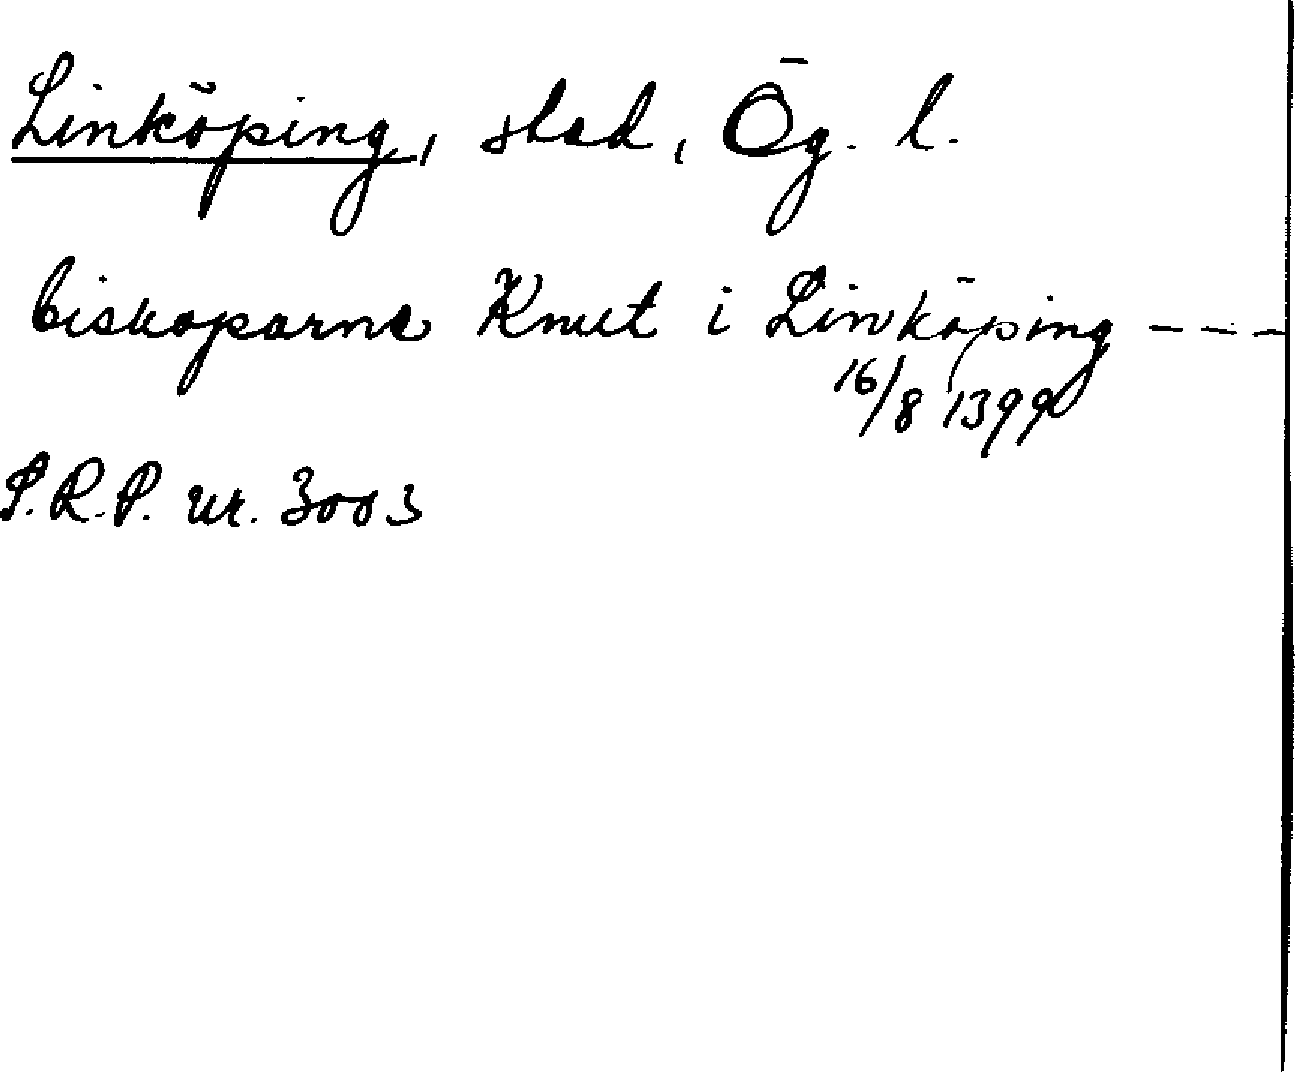 Linköping, stad, Ög. l.
biskoparne Knut i Linköping ---
16/8 1399
S.R.P. nr. 3003